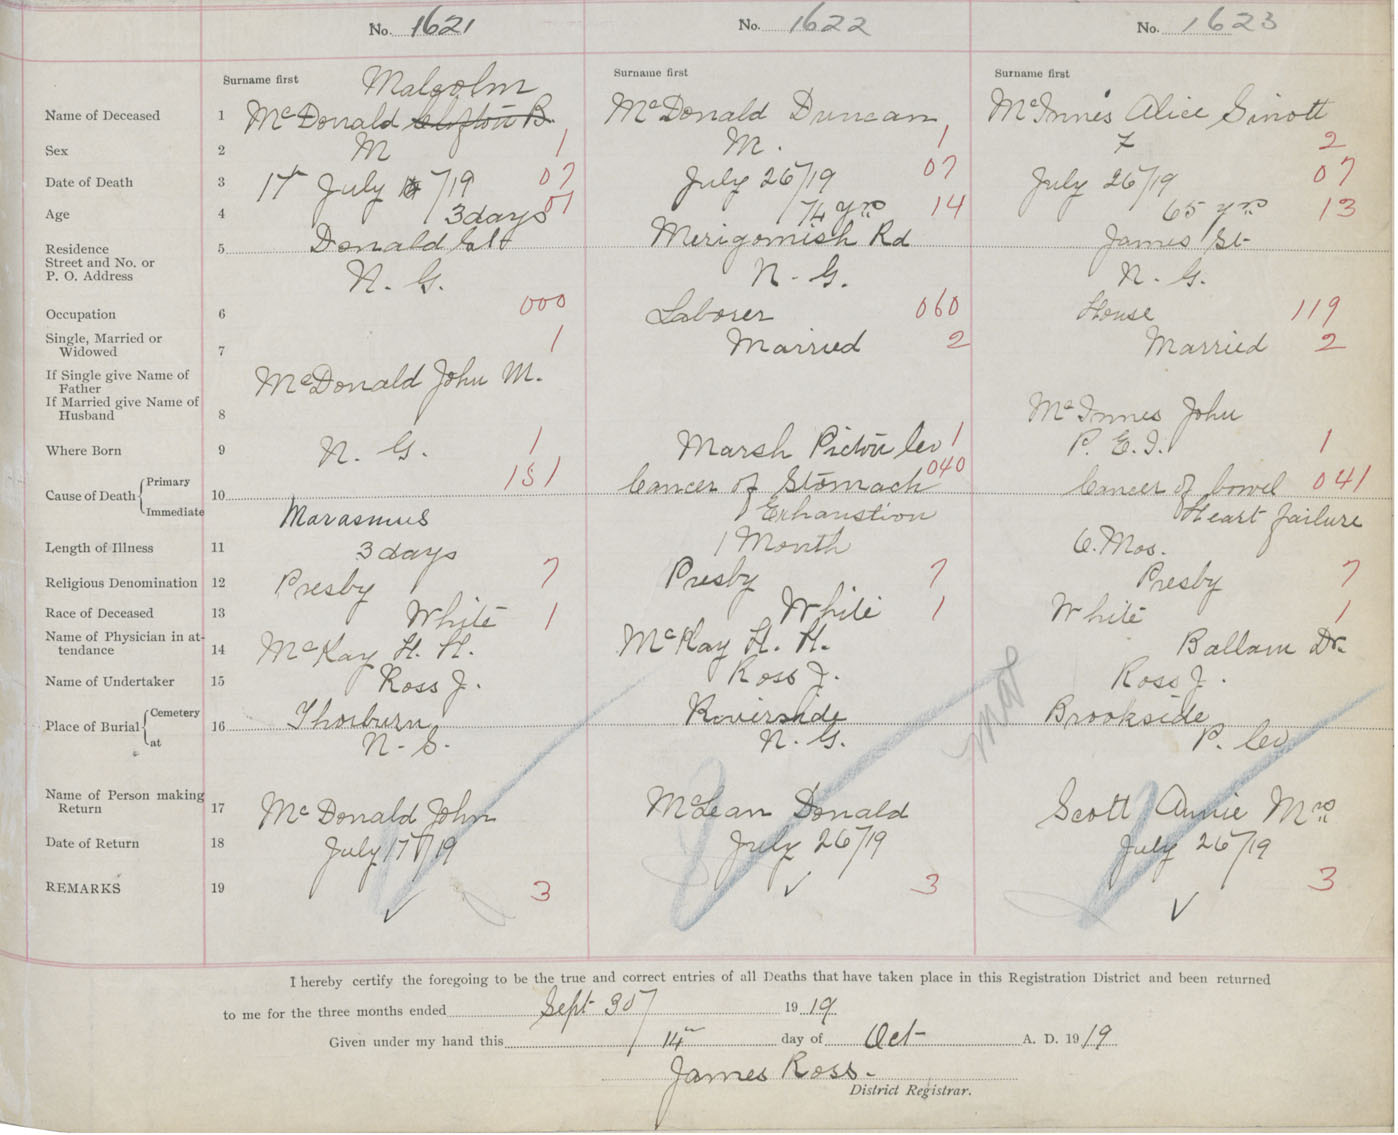 No. 1621 No. 1622 No. 1623
Surname first Surname first Surname first
Malcolm
Name of Deceased 1 McDonald Clifton B. McDonald Duncan McInnis Alice Sinott
Sex 2 M 1 M. 1 F 2
Date of Death 3 17 July /19 07 July 26/19 07 July 26/19 07
Age 4 3 days 01 74 yrs 14 65 yrs 13
Residence 5 Donald Merigomish Rd James St
Street and No. or
P. O. Address N. G. N. G. N. G.
Occupation 6 000 Laborer 060 House 119
Single, Married or
Widowed 7 1 Married 2 Married 2
If Single give Name of
Father McDonald John M.
If Married give Name of
Husband 8 McInnes John
Where Born 9 N. G. 1 Marsh Pictou Co 1 P. E. I. 1
Cause of Death Primary 10 151 Cancer of Stomach 040 Cancer of bowel 041
Immediate Marasmus Exhaustion Heart failure
Length of Illness 11 3 days 1 Month 6. Mos.
Religious Denomination 12 Presby 7 Presby 7 Presby 7
Race of Deceased 13 White 1 White 1 White 1
Name of Physician in at-
tendance 14 McKay H. H. McKay H. H. Ballam Dr.
Name of Undertaker 15 Ross J. Ross J. Ross J.
Place of Burial Cemetery 16 Thorburn Riverside Brookside
at N. S. N. G. P. Co
Name of Person making
Return 17 McDonald John McLean Donald Scott Annie Mrs
Date of Return 18 July 17/19 July 26/19 July 26/19
REMARKS 19 3 3 3
I hereby certify the foregoing to be the true and correct entries of all Deaths that have taken place in this Registration District and been returned
to me for the three months ended Sept 30 1919
Given under my hand this 14 day of Oct A. D. 1919
James Ross.
District Registrar.